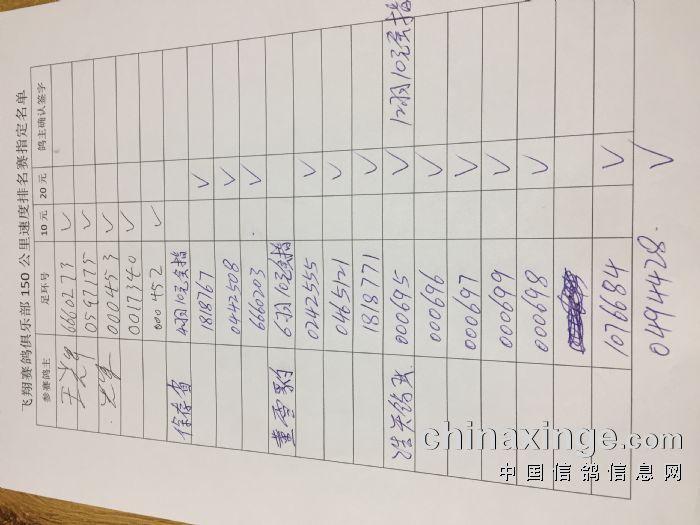 飞翔赛鸽俱乐部150公里速度排名赛指定名单
参赛鸽主 足环号 10元 20元 鸽主确认签字
6660273 ✓
0597175 ✓
0000453 ✓
0017340 ✓
000452 ✓
徐存省 4羽10元全指
1818767 ✓
0442508 ✓
6660203 ✓
董雪豹 6羽10元全指
0242555 ✓
0465121 ✓
1818771 ✓
000695 ✓ 12羽10元全指
000696 ✓
000697 ✓
000699 ✓
000698 ✓
1076684 ✓
0494428. ✓
chinaxinge.com
中国信鸽信息网